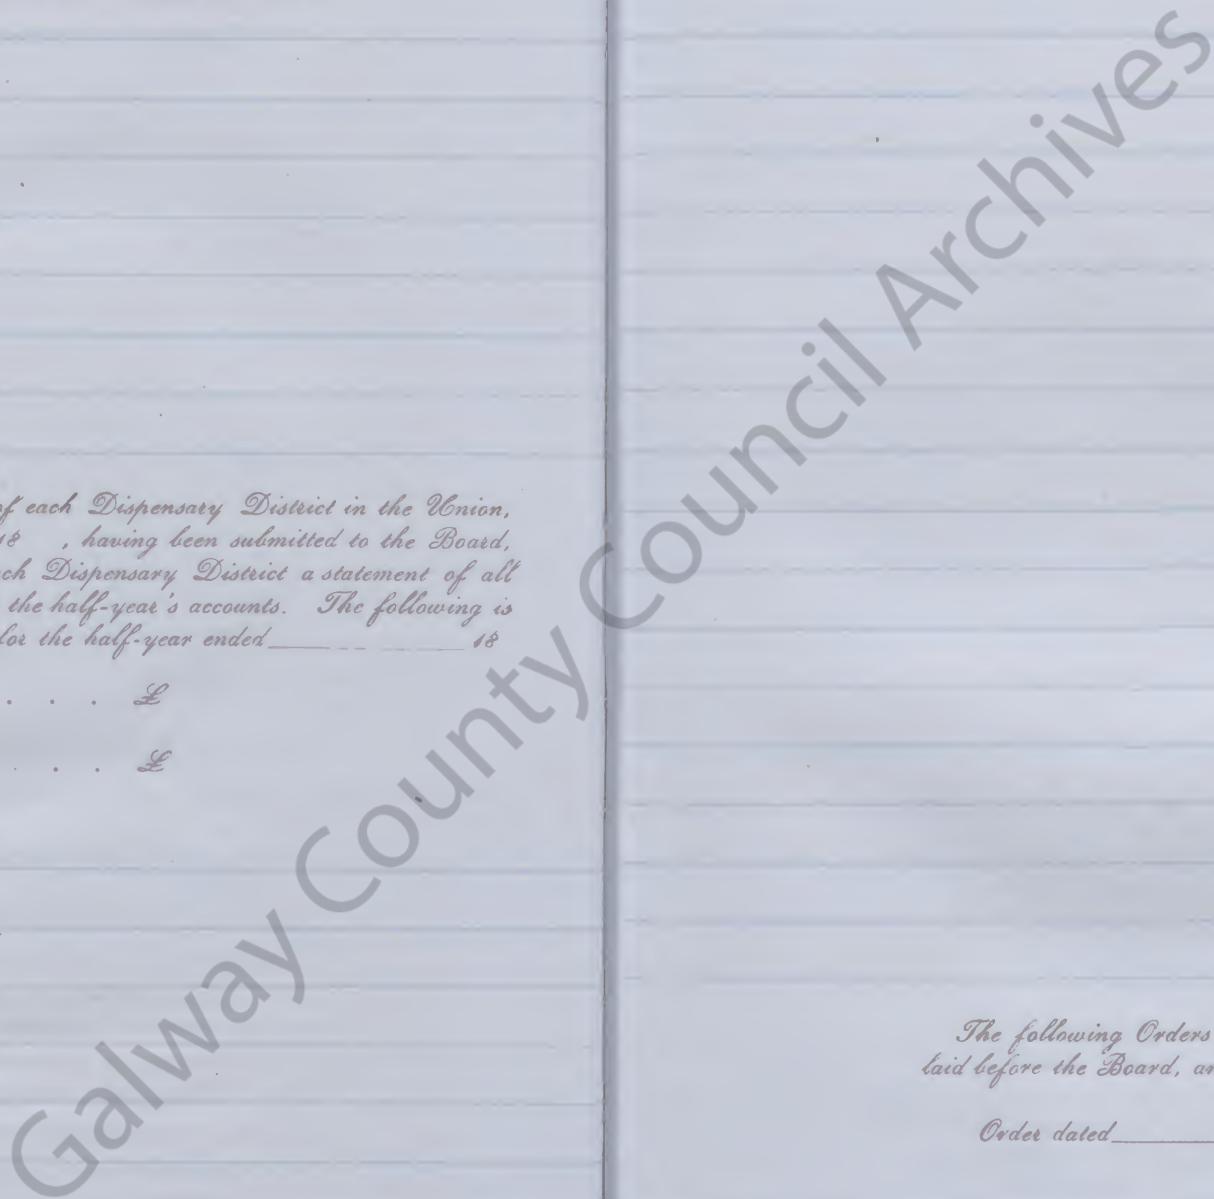 of each Dispensary District in the Union,
18 , having been submitted to the Board,
ch Dispensary District a statement of all
the half-year's accounts. The following is
for the half-year ended 18
. . . £
. . . £
The following Orders
laid before the Board, an
Order dated
Galway County Council Archives